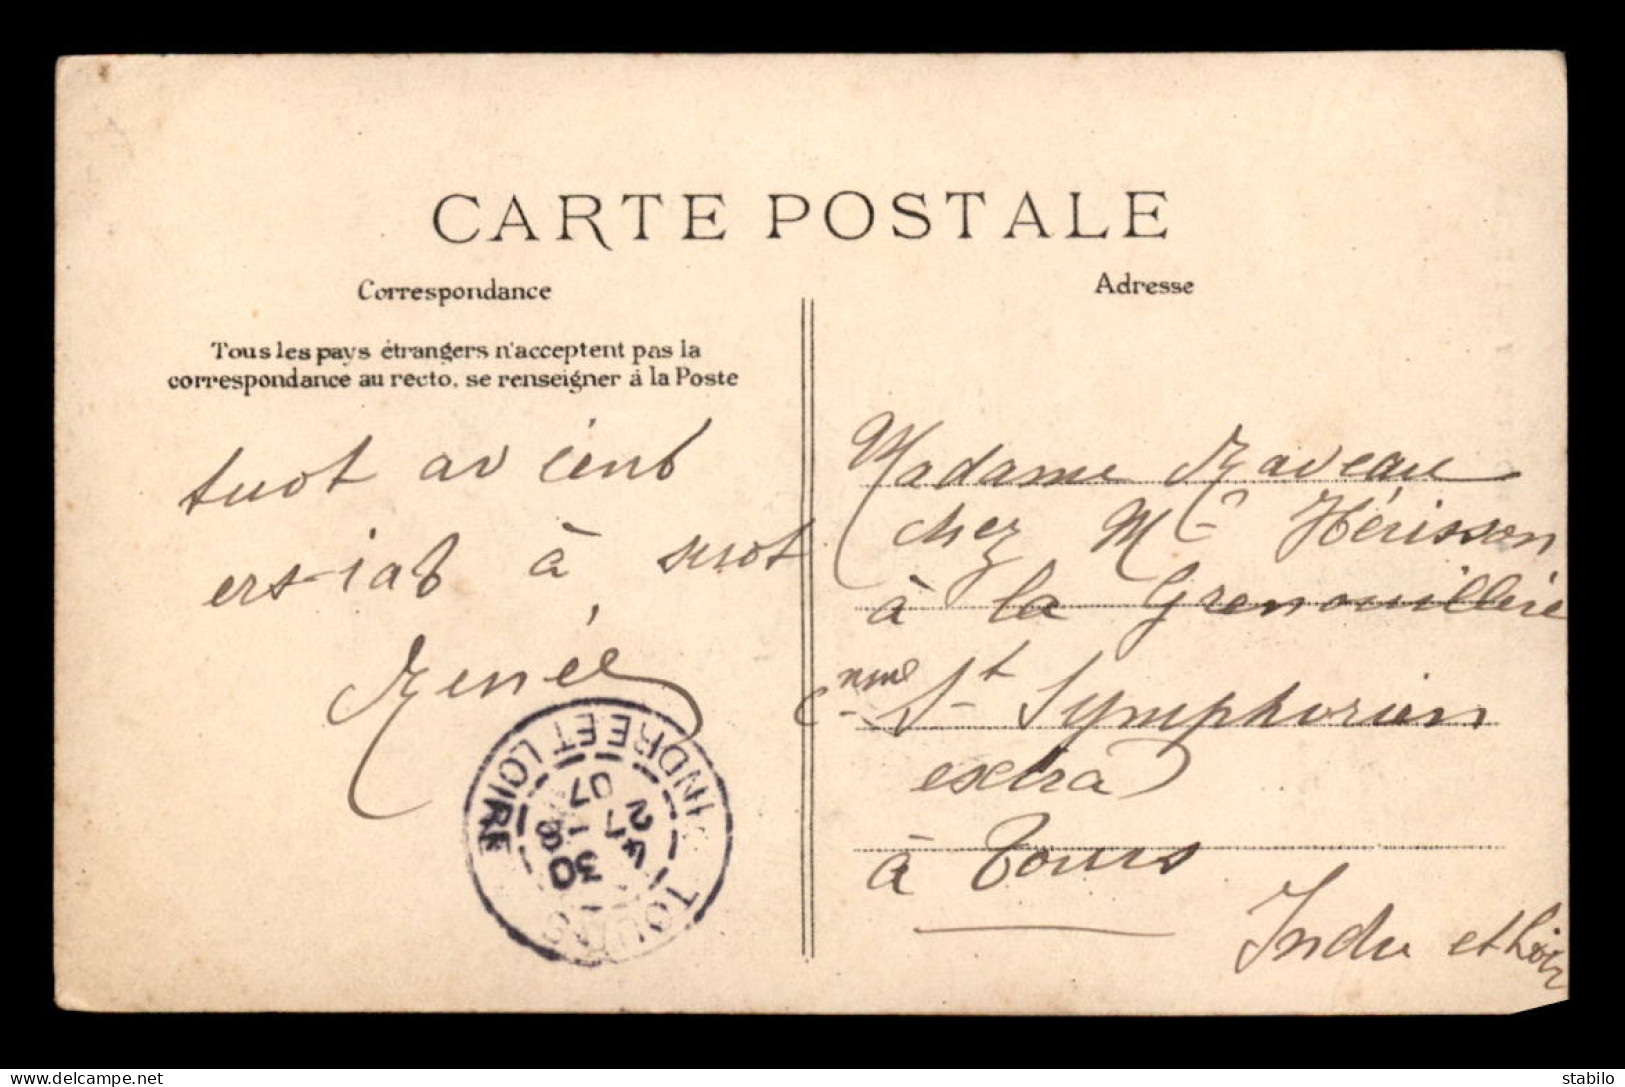 CARTE POSTALE
Correspondance
Tous les pays étrangers n'acceptent pas la
correspondance au recto, se renseigner à la Poste
tuot av
à
Renée
Adresse
Madame Raveau
chez Mr Hérisson
à la Grenouillère
cnme St Symphorien
extra
à Tours
Indre et Loir
TOURS
INDRE ET LOIRE
30
27
07
www.delcampe.net
stabilo